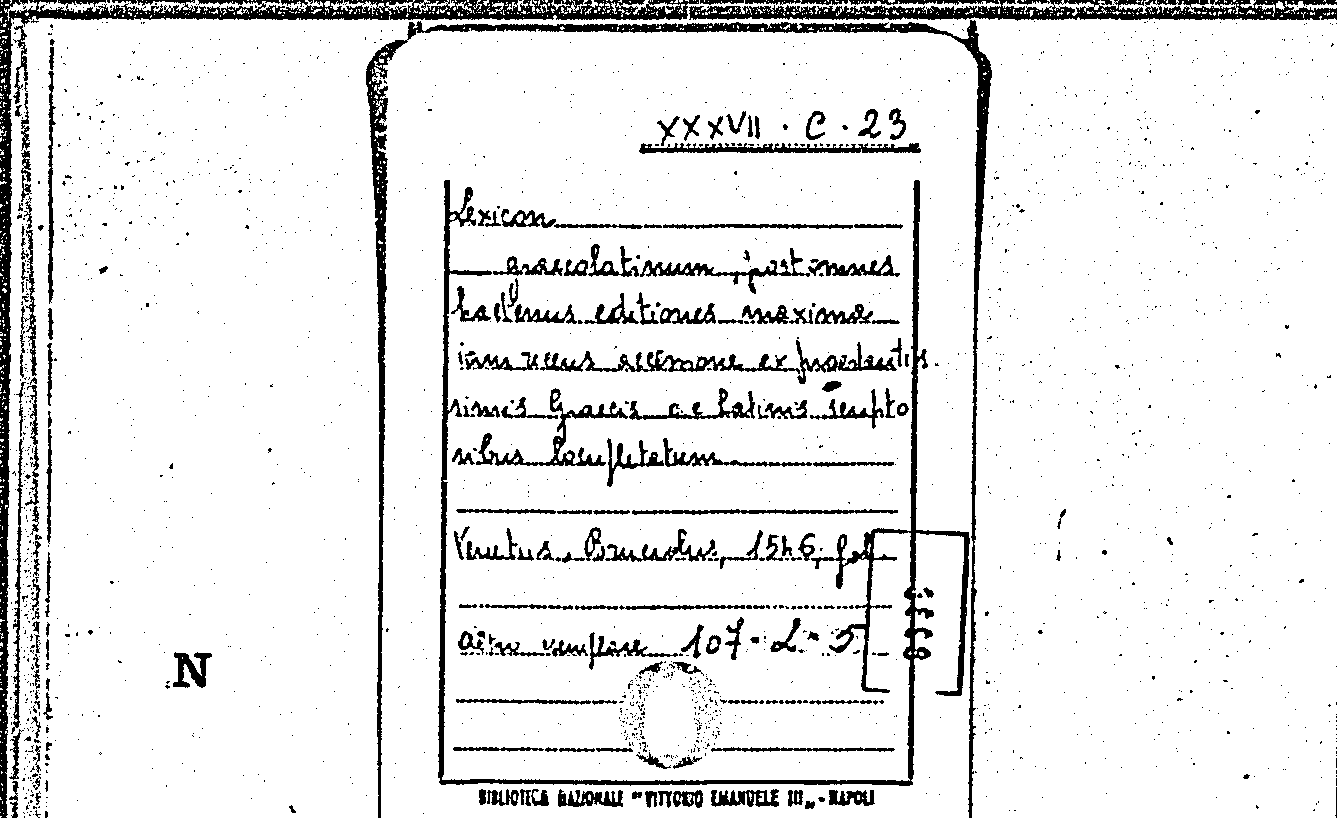 XXXVII · C · 23
Lexicon
graecolatinum, post omnes
hactenus editiones maxima
iam recens accessione ex praestantis
simis Graecis ac Latinis scripto
ribus locupletatum
Venetiis, 1546, fol.
altro esemplare 107 - L - 5
N
BIBLIOTECA NAZIONALE "VITTORIO EMANUELE III„ - NAPOLI